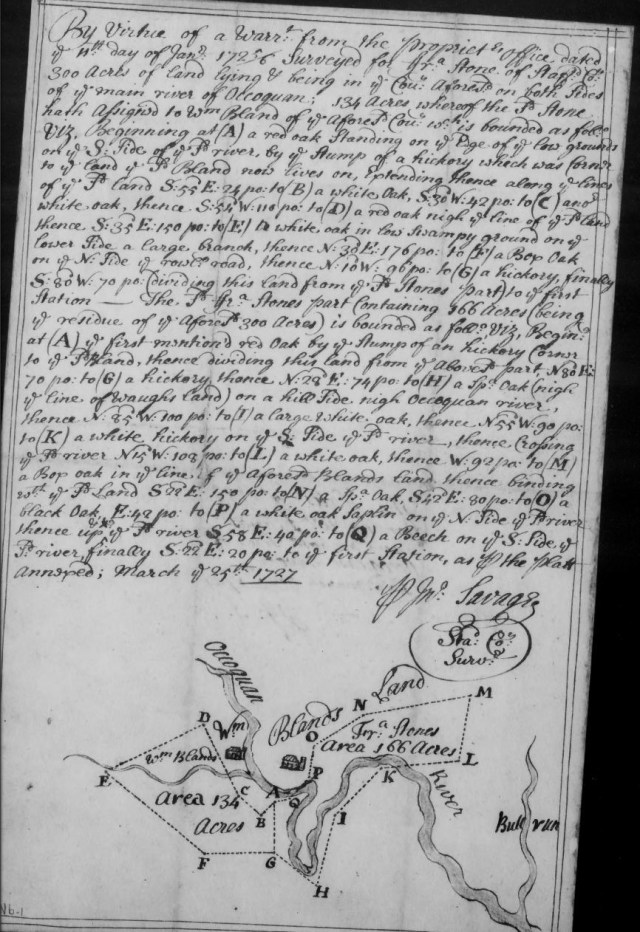 By Virtue of a Warrt. from the Propriets. Office dated
ye 11th. day of Janry. 1725/6 Surveyed for Fra. Stone of Staffd. Co.
300 Acres of land lying & being in ye Cou: Aforesd. on both Sides
of ye main river of Occoquan; 134 Acres whereof the sd. Stone
hath Assign'd to Wm Bland of ye Aforesd. Cou: wch. is bounded as follo:
Viz. Beginning at (A) a red oak Standing on ye Edge of ye low grounds
on ye S: Side of ye sd. river, by ye Stump of a hickory which was Corner
to ye land ye sd. Bland now lives on, extending thence along ye lines
of ye sd. land S:55 E: 24 po: to (B) a white Oak, S:30 W: 42 po: to (C) and
white oak, thence S:54 W: 110 po: to (D) a red oak nigh ye line of ye sd. land
thence S:35 E: 150 po: to (E) a white oak in low Swampy ground on ye
lower Side a large branch, thence N:30 E: 176 po: to (F) a Box Oak
on ye N: Side ye road, thence N:10 W: 96 po: to (G) a hickory, finally
S:80 W: 70 po: (dividing this land from ye sd. Stones part) to ye first
Station — The sd. Fra. Stones part Containing 166 Acres (being
ye residue of ye Aforesd. 300 Acres) is bounded as follo: Viz. Begin:
at (A) ye first mentiond red Oak by ye Stump of an hickory Corner
to ye sd. Bland, thence dividing this land from ye Above sd. part N:80 E:
70 po: to (G) a hickory, thence N:28 E: 74 po: to (H) a Spa: Oak (nigh
ye line of Waughs land) on a hill Side nigh Occoquan river,
thence N: 25 W: 100 po: to (I) a large white oak, thence N 55 W: 90 po:
to (K) a white hickory on ye S: Side ye sd. river, thence Crossing
ye sd. river N 15 W: 108 po: to (L) a white oak, thence W: 92 po: to (M)
a Box oak in ye line of ye Aforesd. Blands land, thence binding
wth. ye sd. Land S:22 E: 150 po: to (N) a Spa: Oak, S:42 E: 80 po: to (O) a
black Oak, E: 42 po: to (P) a white oak Saplin on ye N: Side ye sd. river
thence up ye sd. river S:58 E: 40 po: to (Q) a Beech on ye S: Side ye
sd. river, finally S:22 E: 20 po: to ye first Station, as per the Platt
Annexed; March ye 25th. 1727
Per Jno: Savage
Stad. Co:
Survr.
Occoquan
Wm Blands Land
N
M
D
O
Fra. Stones
Area 166 Acres
Wm Blands
E
P
L
K
River
C
A
Q
Area 134
Acres
B
I
Bull run
F
G
H